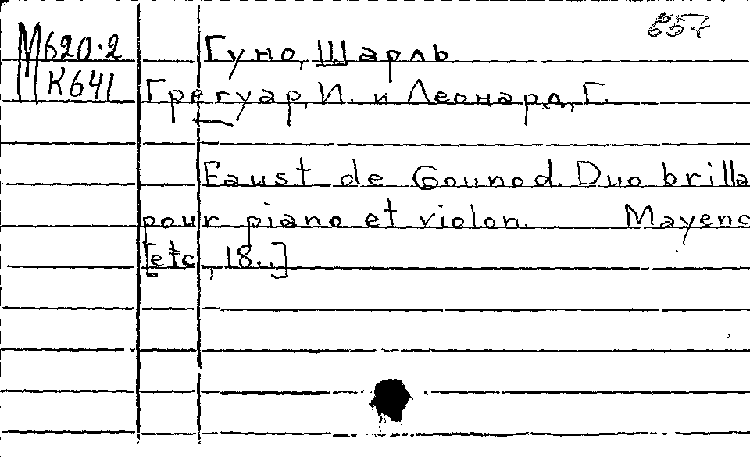 657
М620.2 Гуно, Шарль
К641 Грегуар, И. и Леонард, Г.
Faust de Gounod. Duo brilla
pour piano et violon. Mayenc
[etc, 18..]